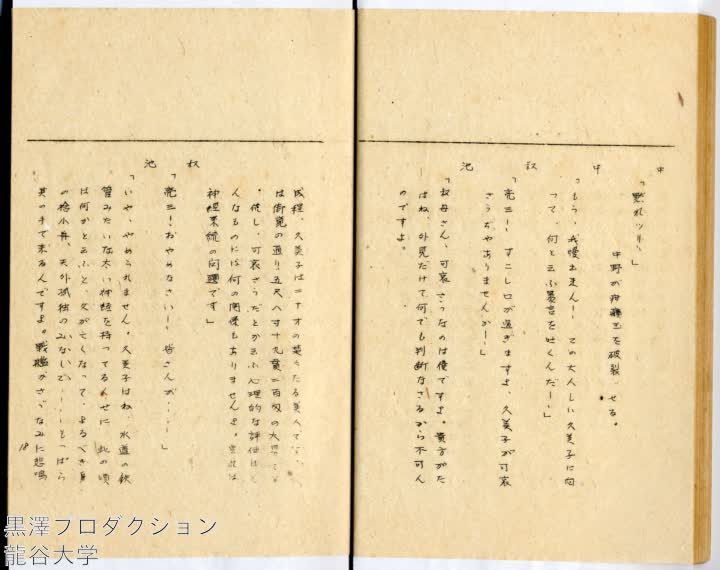 中
「黙れッ!!」
中野が癇癪玉を破裂させる。
中
「もう、我慢出来ん! この大人しい久美子に向
って、何と云ふ暴言を吐くんだ!」
叔
「亮三! すこし口が過ぎますよ、久美子が可哀
さうぢやありませんか!」
池
「叔母さん、可哀さうなのは僕ですよ。貴方がた
はね、外見だけで何でも判断なさるから不可ん
のですよ。
成程、久美子は二十才の楚々たる美人で
は御覧の通り五尺八寸十九貫二百匁の大男
。併し、可哀さうだとか云ふ心理的な評価はそ
んなものには何の関係もありませんよ。
神経系統の問題です」
叔
「亮三! おやめなさい! 皆さんが・・・」
池
「いや、やめられません。久美子はね、水道の鉄
管みたいな太い神経を持ってるくせに 此の頃
は何かと云ふと、父が亡くなって、よるべき身
の捨小舟、天外孤独のみなしご・・・ともっぱら
其の手で来るんですよ。戦艦がさゞなみに悲鳴
18
黒澤プロダクション
龍谷大学